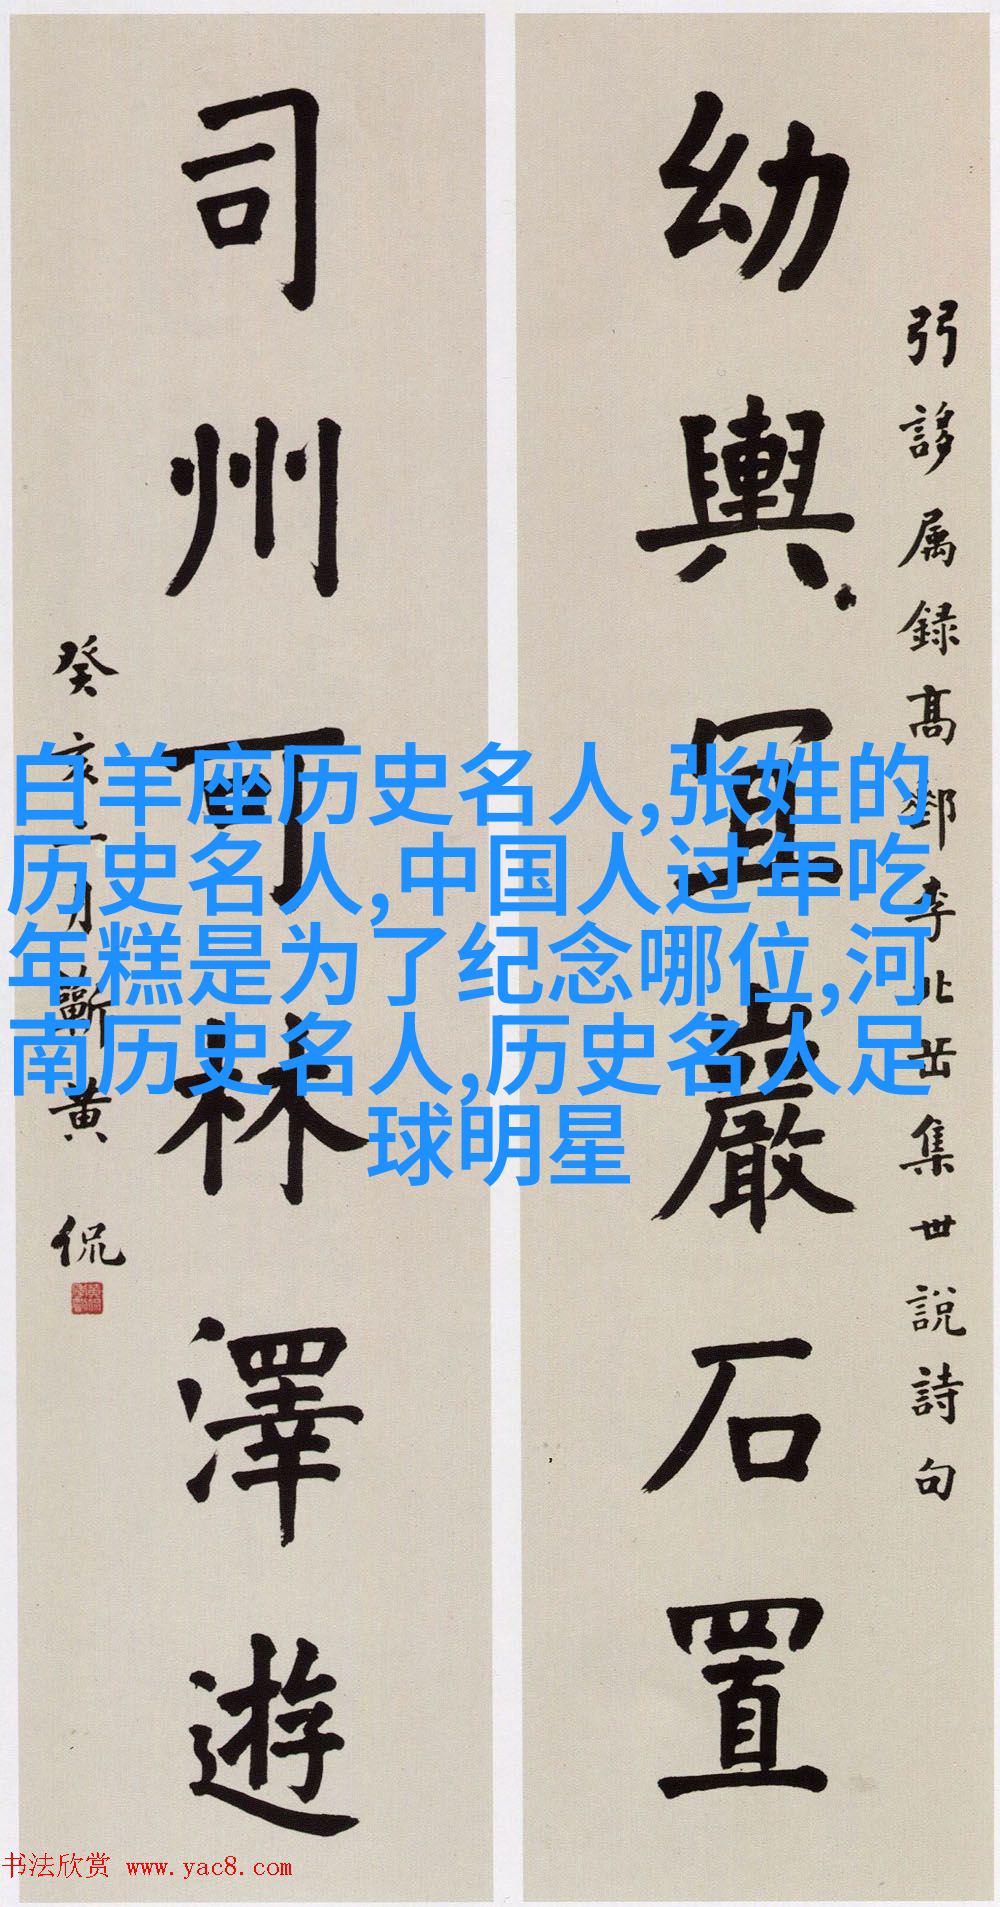 弜誃属録高郵李北岳集世說詩句
幼輿宜巖石置
司州可林澤遊
癸亥二月蘄黄侃
白羊座历史名人,张姓的
历史名人,中国人过年吃
年糕是为了纪念哪位,河
南历史名人,历史名人足
球明星
书法欣赏 www.yac8.com